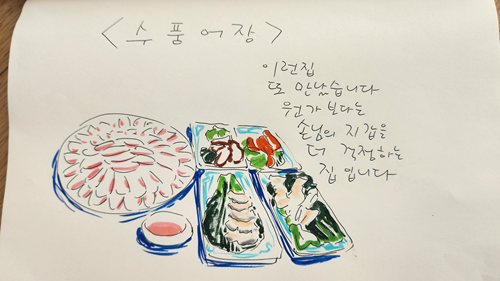 < 수풍어장 >
이런집
또 만났습니다
원가 보다는
손님의 지갑을
더 걱정하는
집 입니다